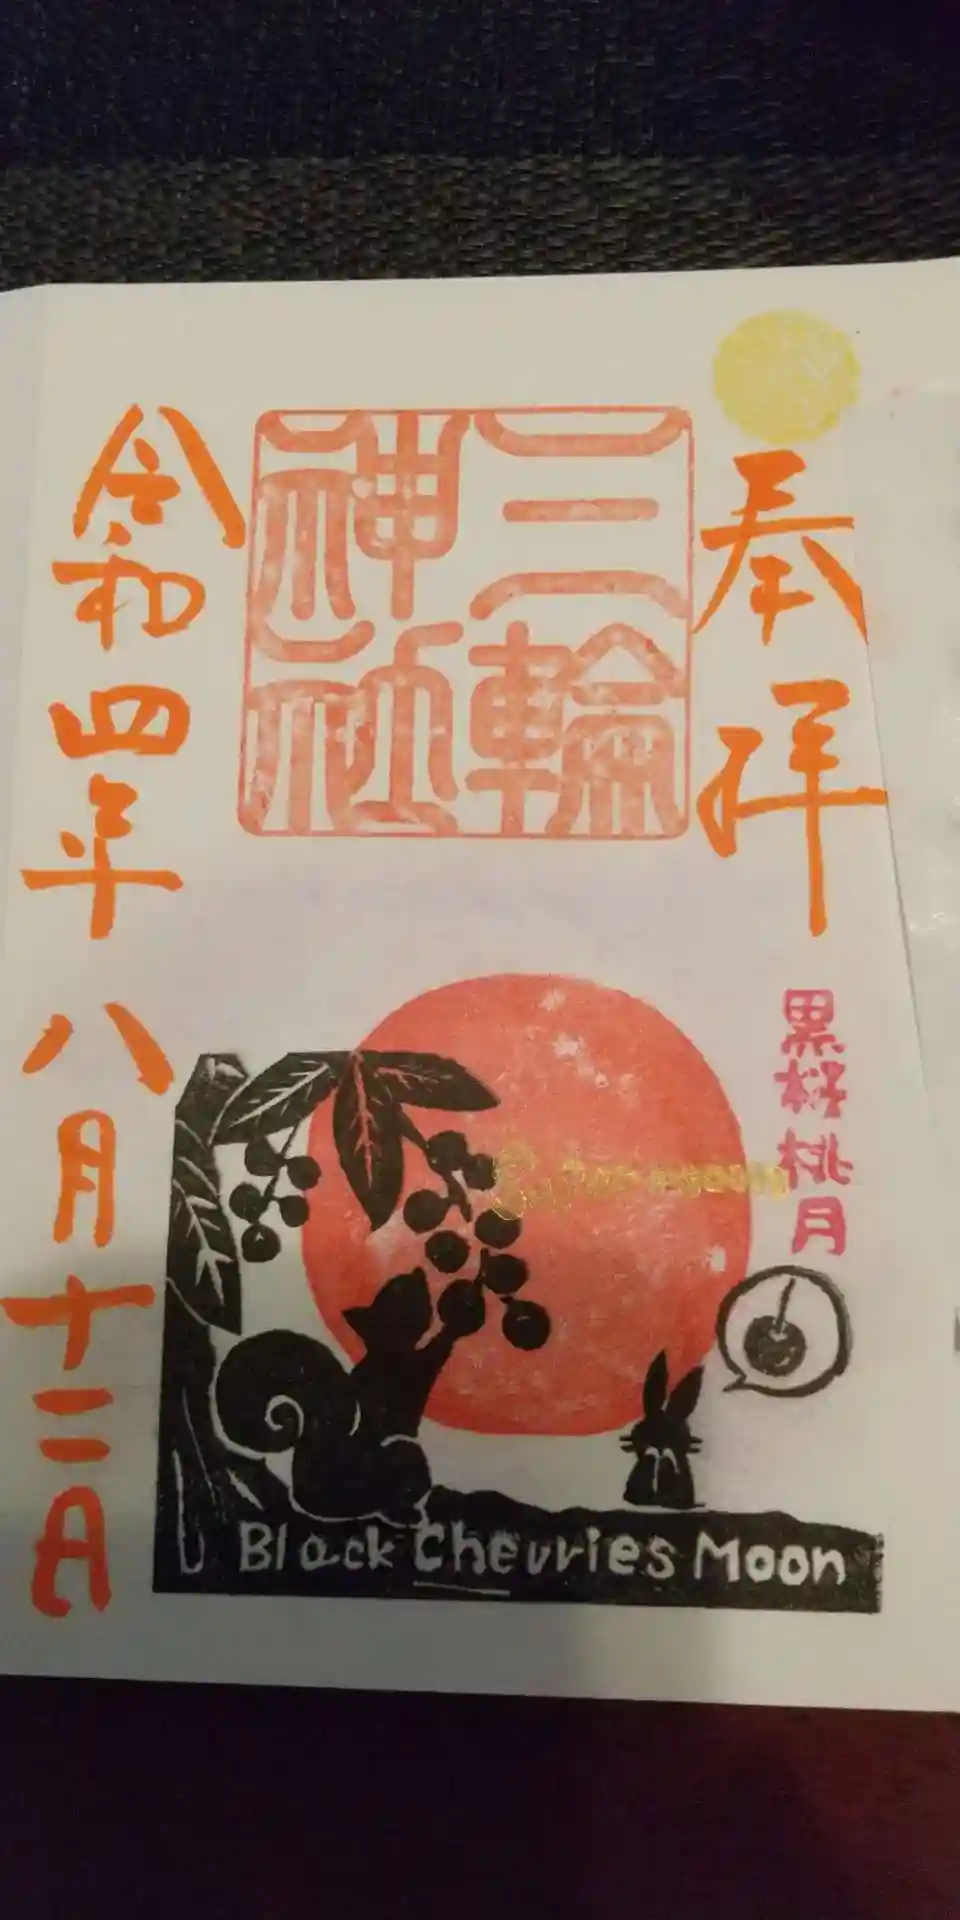 奉拝
黒桜桃月
三輪
神社
令和四年八月十二日
Black Cherries Moon